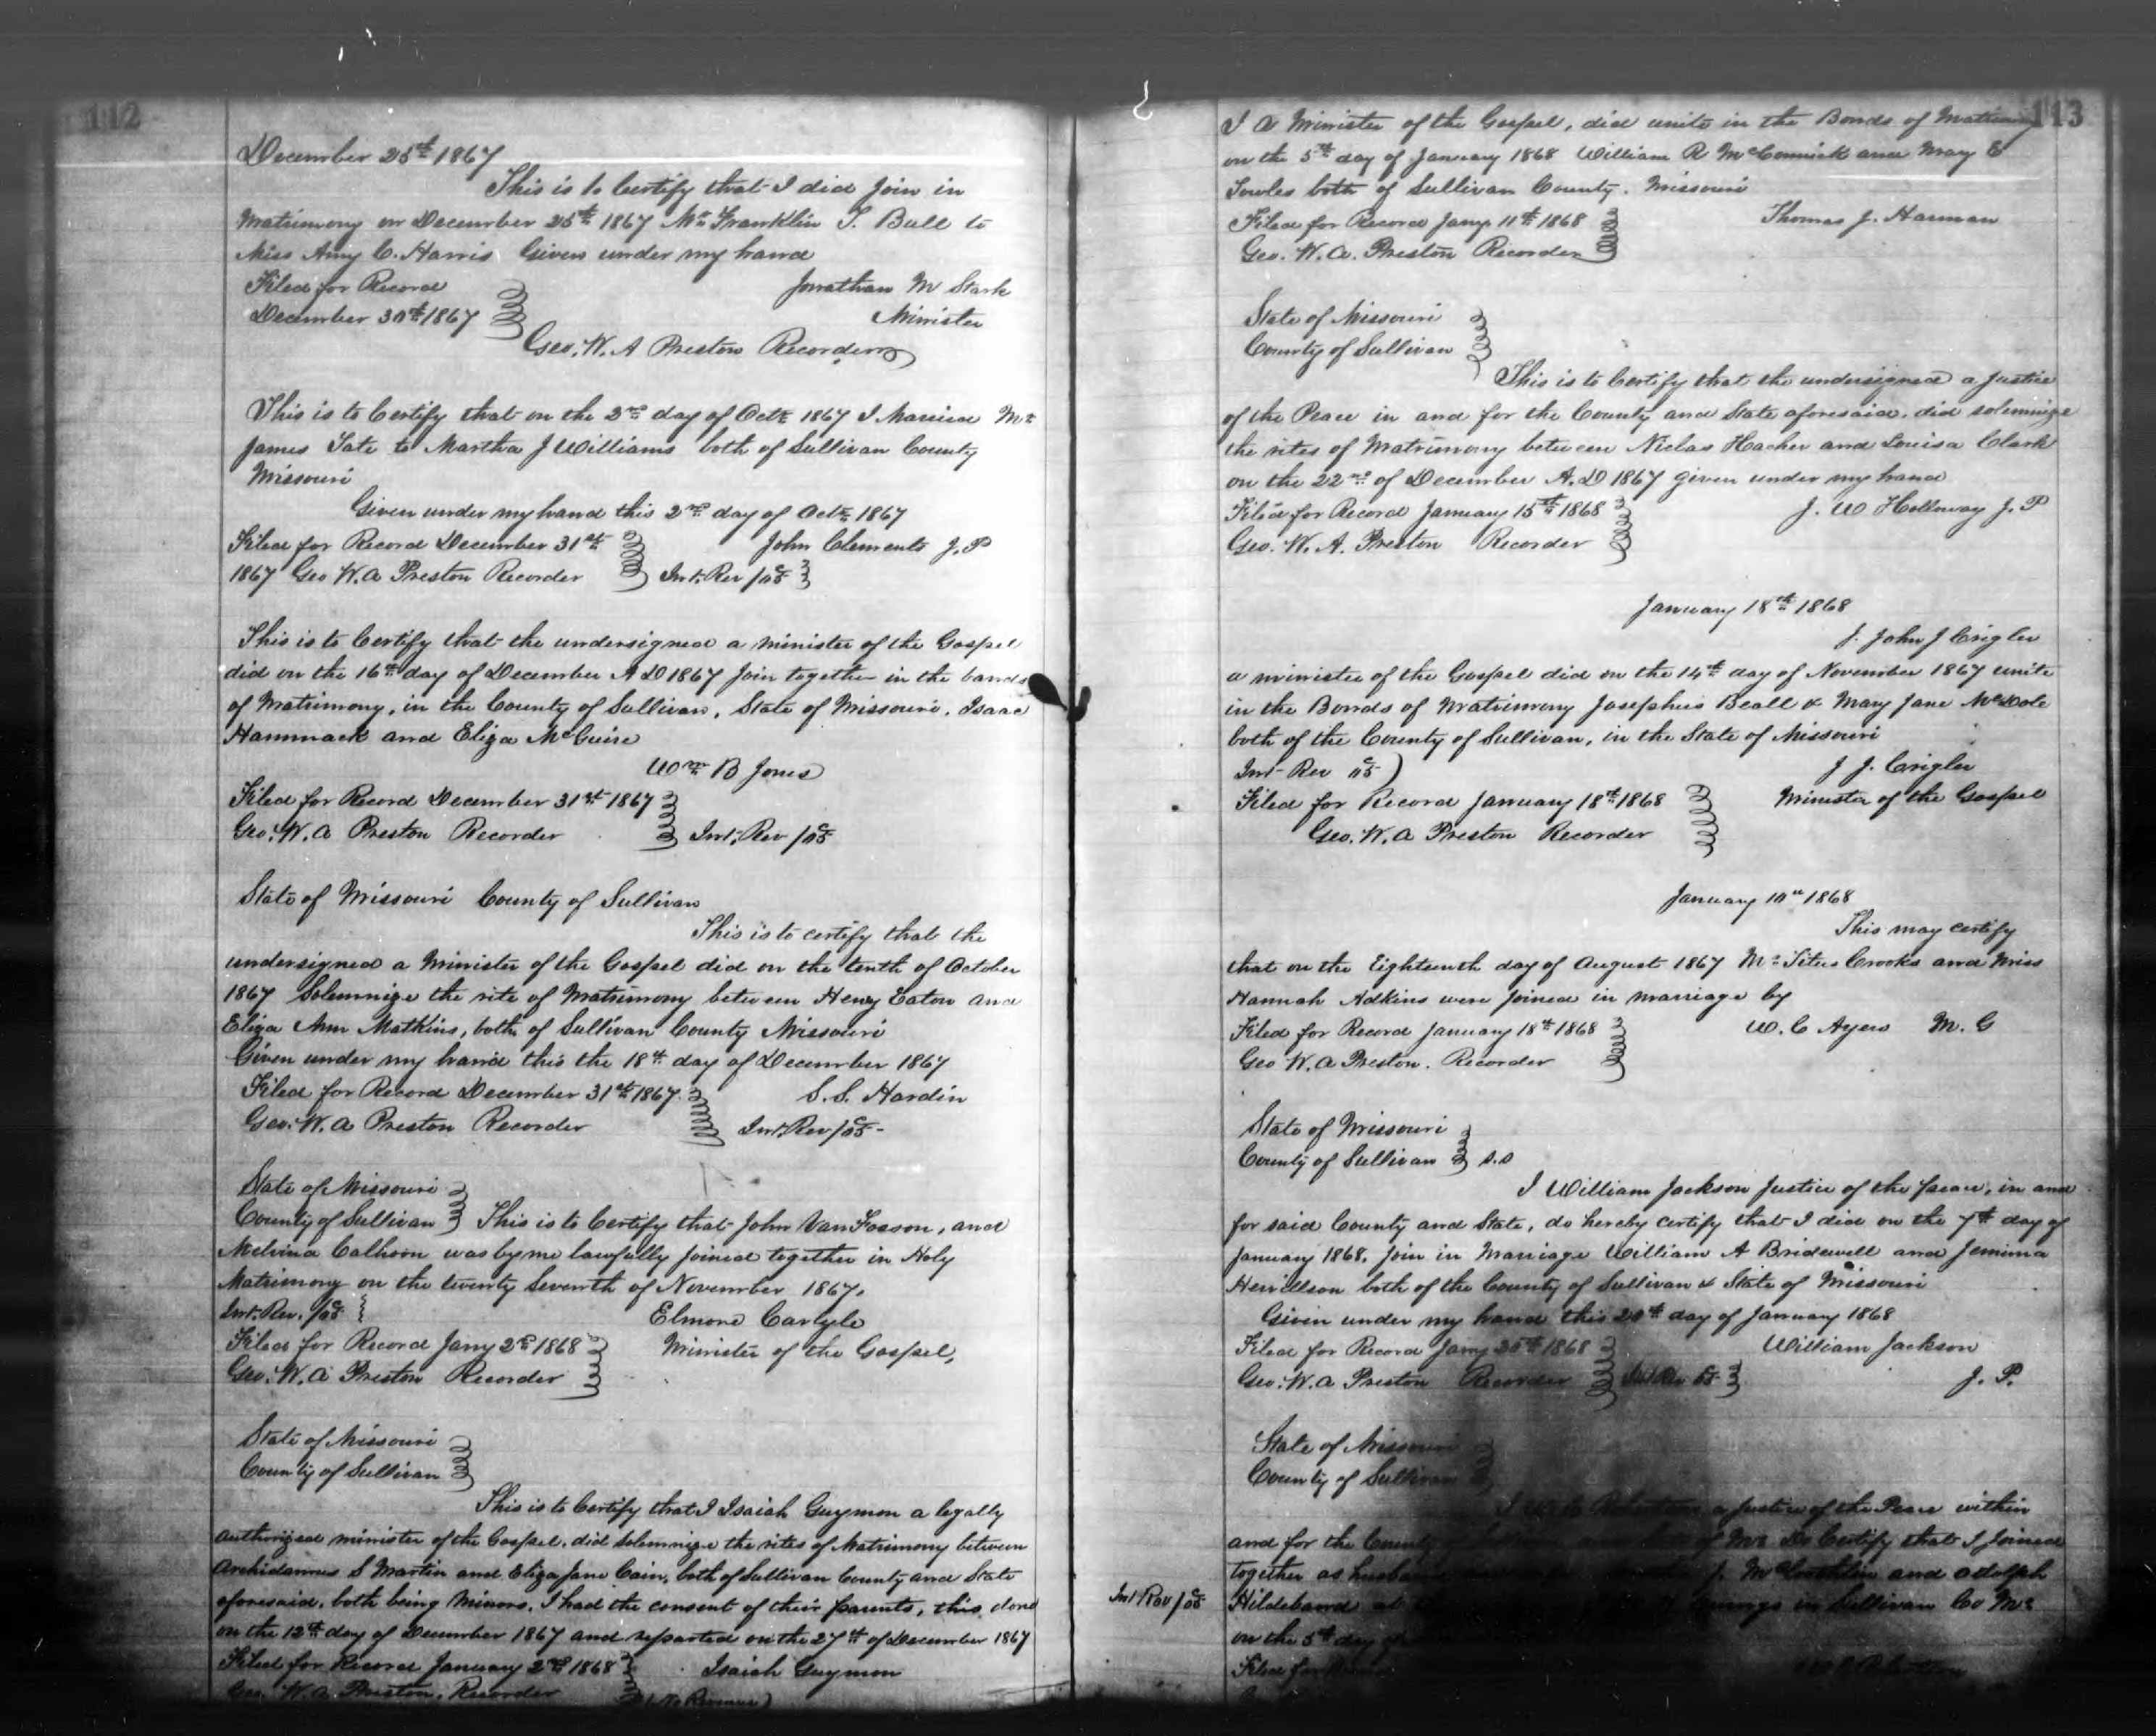 112
December 25th 1867
This is to Certify that I did join in
Matrimony on December 25th 1867 Mr Franklin T. Bull to
Miss Amy C. Harris Given under my hand
Filed for Record
December 30th 1867
Jonathan M Stark
Minister
Geo. W. A Preston Recorder
This is to Certify that on the 2nd day of Octr 1867 I Married Mr
James Tate to Martha J Williams both of Sullivan County
Missouri
Given under my hand this 2nd day of Octr 1867
Filed for Record December 31st
1867 Geo W. A Preston Recorder
John Clements J. P
Int. Rev /05c
This is to Certify that the undersigned a minister of the Gospel
did on the 16th day of December A D 1867 join together in the bands
of Matrimony, in the County of Sullivan, State of Missouri, Isaac
Hammack and Eliza McGuire
Wm B Jones
Filed for Record December 31st 1867
Geo. W. A Preston Recorder
Int. Rev /05c
State of Missouri County of Sullivan
This is to certify that the
undersigned a Minister of the Gospel did on the tenth of October
1867 Solemnize the rite of Matrimony between Henry Eaton and
Eliza Ann Matkins, both of Sullivan County Missouri
Given under my hand this the 18th day of December 1867
Filed for Record December 31st 1867
Geo. W. A Preston Recorder
S. S. Hardin
Int. Rev /05c
State of Missouri
County of Sullivan This is to Certify that John VanFosson, and
Melvina Calhoon was by me lawfully joined together in Holy
Matrimony on the twenty Seventh of November 1867.
Int. Rev. /05c
Elmore Carlyle
Filed for Record Jany 2nd 1868
Minister of the Gospel,
Geo. W. A Preston Recorder
State of Missouri
County of Sullivan
This is to Certify that I Isaiah Guymon a legally
authorized minister of the Gospel, did solemnize the rites of Matrimony between
Archidamus S Martin and Eliza Jane Cain, both of Sullivan County and State
aforesaid, both being Minors, I had the consent of their parents, this done
on the 12th day of December 1867 and reported on the 27th of December 1867
Filed for Record January 2nd 1868
Isaiah Guymon
Geo. W. A. Preston, Recorder
(No Revenue)
113
I a Minister of the Gospel, did unite in the Bonds of Matrimony
on the 5th day of January 1868 William R McCormick and Mary E
Towles both of Sullivan County. Missouri
Filed for Record Jany 11th 1868
Thomas J. Harman
Geo. W. A. Preston Recorder
State of Missouri
County of Sullivan
This is to Certify that the undersigned a Justice
of the Peace in and for the County and State aforesaid, did solemnize
the rites of Matrimony between Niclas Hacker and Louisa Clark
on the 22nd of December A. D 1867 given under my hand
Filed for Record January 15th 1868
J. W Holloway J. P
Geo. W. A. Preston Recorder
January 18th 1868
I. John J Crigler
a minister of the Gospel did on the 14th day of November 1867 unite
in the Bonds of Matrimony Josephus Beall & Mary Jane McDole
both of the County of Sullivan, in the State of Missouri
Int- Rev 05c
J J. Crigler
Filed for Record January 18th 1868
Minister of the Gospel
Geo. W. A Preston Recorder
January 10th 1868
This may certify
that on the Eighteenth day of August 1867 Mr Titus Crooks and Miss
Hannah Adkins were joined in marriage by
Filed for Record January 18th 1868
W. C Ayers M. G
Geo W. A Preston. Recorder
State of Missouri
County of Sullivan S.S
I William Jackson Justice of the peace, in and
for said County and State, do hereby certify that I did on the 7th day of
January 1868, join in Marriage William A Bridewell and Jemima
both of the County of Sullivan & State of Missouri
Given under my hand this 20th day of January 1868
Filed for Record Jany 25th 1868
William Jackson
Geo. W. A Preston Recorder
J. P.
State of Missouri
County of Sullivan
a Justice of the Peace within
and for the County of Mo Do Certify that I joined
together as husband J. McLochlin and Adolph
Int Rev /05c
Hildebrand at in Sullivan Co Mo
on the 5th day of
Filed for Record